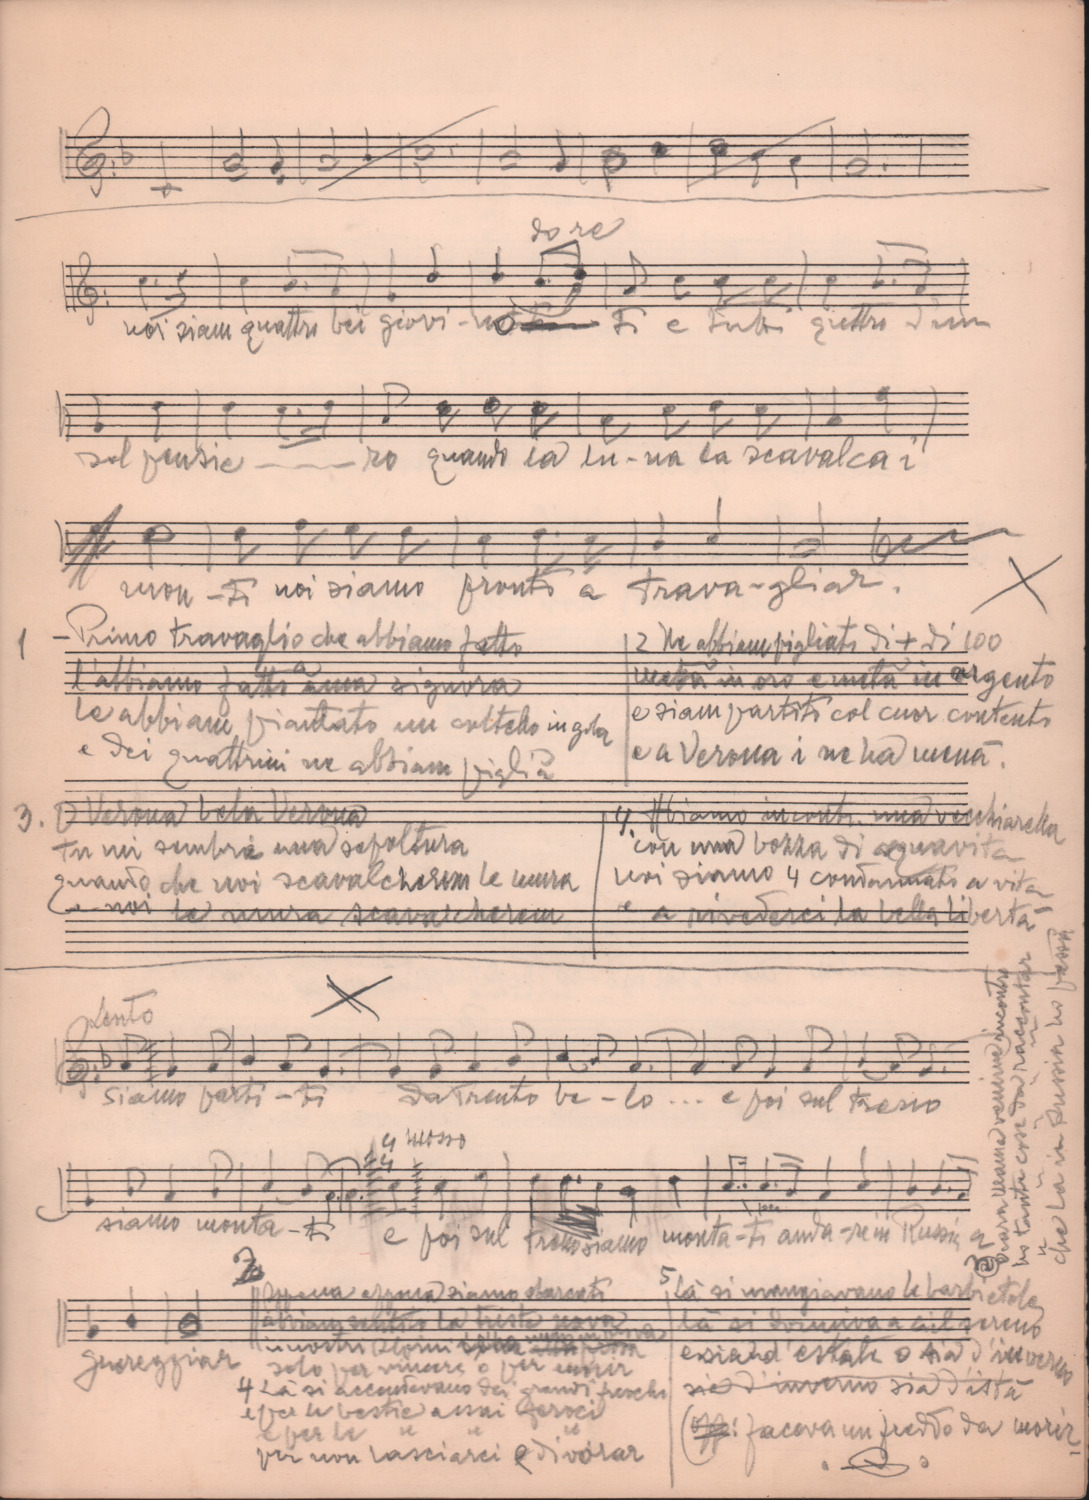 do re
noi siam quattro bei giovi-notti e tutti quattro d'un
sol pensie - - - ro quando la lu-na la scavalca i
mon-ti noi siamo pronti a trava-gliar.
1 - Primo travaglio che abbiamo fatto
l'abbiamo fatto a una signora
le abbiam piantato un coltello in gola
e dei quattrini ne abbiam piglià
2 Ne abbiam pigliati di + di 100
metà in oro e metà in argento
e siam partiti col cuor contento
e a Verona i ne ha menà.
3. O Verona bela Verona
tu mi sembri una sepoltura
quando che noi scavalcherem le mura
e noi le mura scavalcherem
4. Abiamo incontr. una vecchiarella
con una bozza di aquavita
noi siamo 4 condannati a vita
e a rivederci la bella libertà
Lento
Siamo parti-ti da Trento be-lo ... e poi sul treno
siamo monta-ti
mosso
e poi sul treno siamo monta-ti anda-re in Russia a
guereggiar
Appena appena siamo sbarcati
abbiam sentito la trista nova
i nostri Alpini
solo per vincere o per morir
4 Là si accendevano dei grandi freschi
e per le bestie assai feroci
e per le " " "
per non lasciarci divorar
5 Là si mangiavano le barbietole
là si dormiva a ciel sereno
e sia d'estate o sia d'inverno
sia d'inverno sia d'istà
facova un freddo da morir
cara mama venime incontro
ho tante cose da racontar
" " " "
che là in Russia ho passà